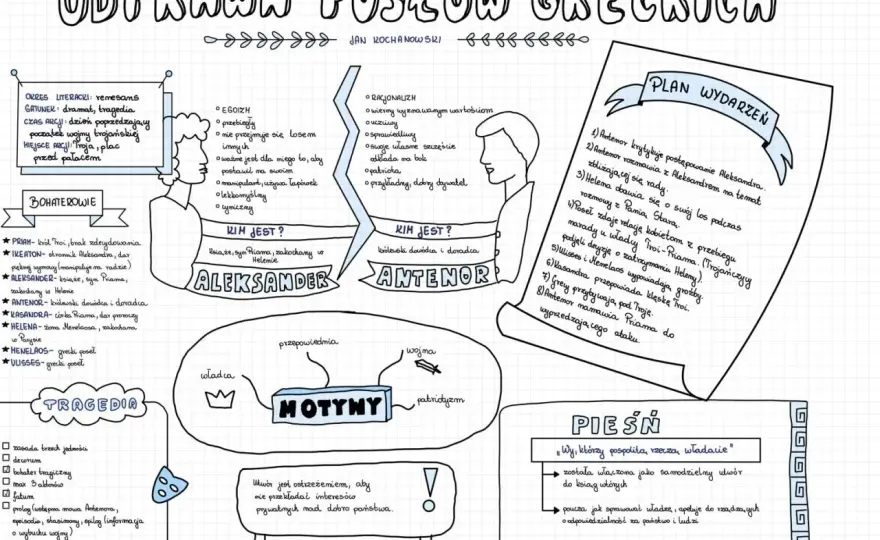 ODPRAWA POSŁÓW GRECKICH
JAN KOCHANOWSKI
OKRES LITERACKI: renesans
GATUNEK: dramat, tragedia
CZAS AKCJI: dzień poprzedzający
początek wojny trojańskiej
MIEJSCE AKCJI: Troja, plac
przed pałacem
BOHATEROWIE
★ PRIAM- król Troi, brak zdecydowania
★ IKEATON- stronnik Aleksandra, dar
pięknej wymowy (manipuluje na radzie)
★ ALEKSANDER- książę, syn Priama,
zakochany w Helenie
★ ANTENOR- królewski dowódca i doradca
★ KASANDRA- córka Priama, dar proroczy
★ HELENA- żona Menelaosa, zakochana
w Parysie
★ MENELAOS- grecki poseł
★ ULISSES- grecki poseł
EGOIZM
przebiegły
nie przejmuje się losem
innych
ważne jest dla niego to, aby
postawić na swoim
manipulant, używa łapówek
lekkomyślny
cyniczny
KIM JEST?
książę, syn Priama, zakochany w
Helenie
ALEKSANDER
RACJONALIZM
wierny wyznawanym wartościom
uczciwy
sprawiedliwy
swoje własne szczęście
odkłada na bok
patriota
przykładny, dobry obywatel
KIM JEST?
królewski dowódca i doradca
ANTENOR
PLAN WYDARZEŃ
1) Antenor krytykuje postępowanie Aleksandra.
2) Antenor rozmawia z Aleksandrem na temat
zbliżającej się rady.
3) Helena obawia się o swój los podczas
rozmowy z Panią Starą.
4) Poseł zdaje relację kobietom z przebiegu
narady u władcy Troi-Priama. (Trojańczycy
podjęli decyzję o zatrzymaniu Heleny).
5) Ulisses i Menelaos wypowiadają groźby.
6) Kasandra przepowiada klęskę Troi.
7) Grecy przybywają pod Troję.
8) Antenor namawia Priama do
wyprzedzającego ataku.
przepowiednia
wojna
władca
MOTYWY
patriotyzm
TRAGEDIA
zasada trzech jedności
decorum
bohater tragiczny
max 3 aktorów
fatum
prolog (wstępna mowa Antenora,
epizodia, stasimony, epilog (informacja
o wybuchu wojny)
Utwór jest ostrzeżeniem, aby
nie przekładać interesów
prywatnych nad dobro państwa.
!
PIEŚŃ
„Wy, którzy pospolitą rzeczą władacie"
została włączona jako samodzielny utwór
do ksiąg wtórych
poucza jak sprawować władzę, apeluje do rządzących
o odpowiedzialność za państwo i ludzi